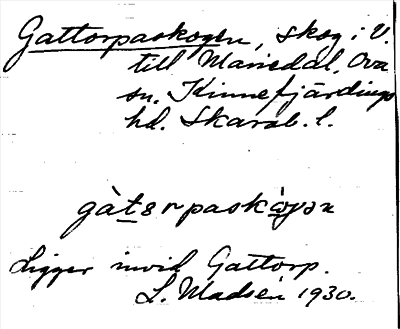 Gattorpaskogen, skog i V.
till Mariedal, Ova
sn. Kinnefjärdings
hd. Skarab. l.
gàtərpaskógən
Ligger invid Gattorp.
L. Madsén 1930.